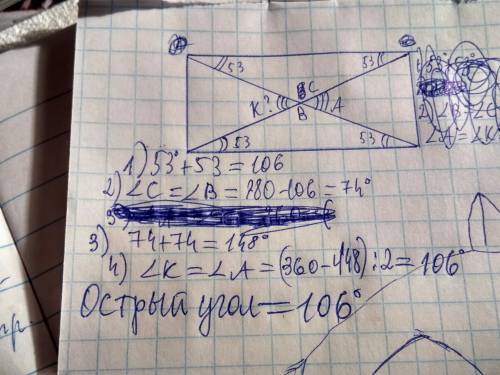 53 53
К? С А
В
53 53
1) 53°+53=106
2) ∠C=∠B=180-106=74°
3) 74+74=148°
4) ∠K=∠A=(360-148):2=106°
Острый угол=106°
∠A=∠K